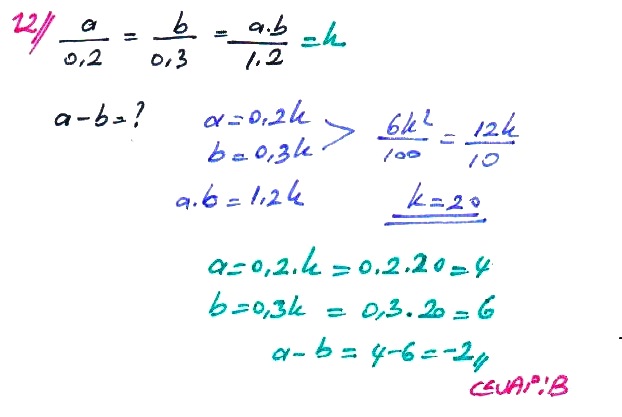 12// a/0,2 = b/0,3 = a.b/1.2 = k
a-b=?
a=0,2k
b=0,3k > 6k²/100 = 12k/10
a.b=1,2k
k=20
a=0,2.k=0.2.20=4
b=0,3k = 0,3.20=6
a-b=4-6=-2//
CEVAP:B